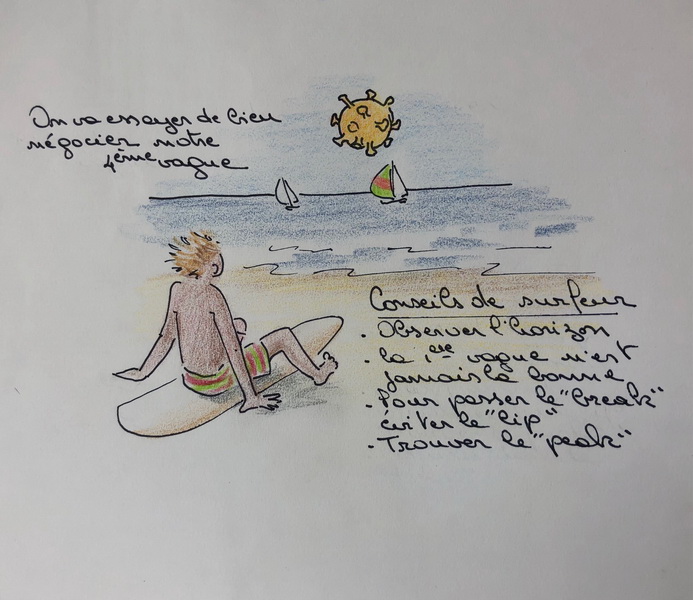 On va essayer de bien
négocier notre
4ème vague
Conseils de surfeur
. Observer l'horizon
. La 1ère vague n'est
jamais la bonne
. Pour passer le "break"
éviter le "lip"
. Trouver le "peak"